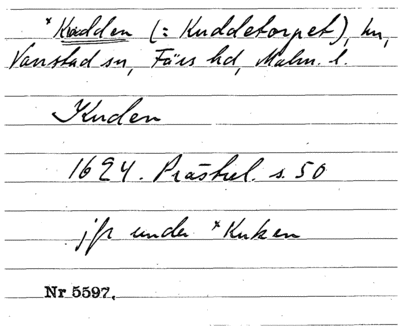 *Kudden (: Kuddetorpet), hn,
Vanstad sn, Färs hd, Malm. l.
Kuden
1624. Prästrel. s. 50
jfr under *Kuken
Nr 5597.